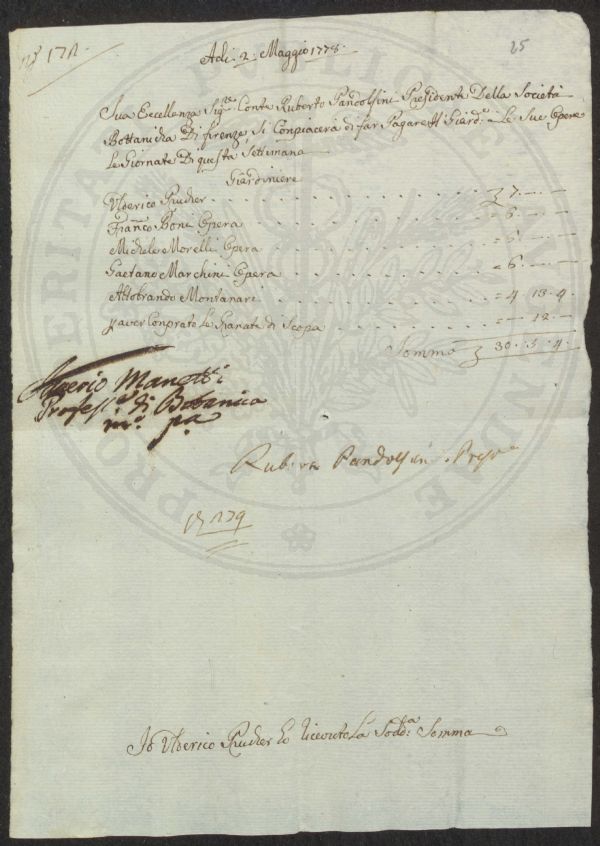 N.º 172.
25
Adi. 2. Maggio 1778.
Sua Eccellenza Sigre Conte Ruberto Pandolfini Presidente Della Società
Bottanicha Di firenze, Si Conpiacerà di far Pagare Al Giard.e e Le Sue Opere
Le Giornate Di questa Settimana
Giardiniere
Ulderico Prucher . . . 7. — . —
Franco Boni Opera . . . = 6. — . —
Michele Morelli Opera . . . = — . —
Gaetano Marchini Opera . . . = 6. — . —
Altobrando Montanari . . . = 4. 13. 4
paver Conprato Le Granate di Scopa . . . = — . 12. —
Somma 30. 5. 4.
Saverio Manetti
Profess.e di Botanica
mo. pa.
Rub.to Pandolfini Preste
Io Ulderico Prucher ho riceuto La Sodd.a Somma
PRO VERITATE
FIDE